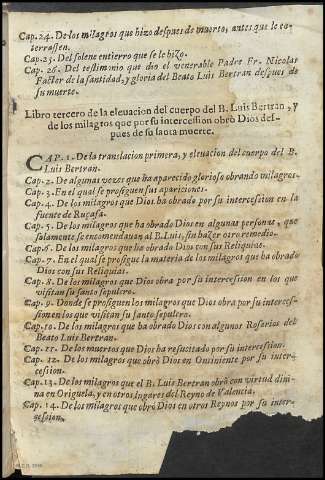 Cap.24. De los milagros que hizo despues de muerto, antes que le en-
terrassen.
Cap.25. Del solene entierro que se le hizo.
Cap. 26. Del testimonio que dio el venerable Padre Fr. Nicolas
Factor de la santidad, y gloria del Beato Luis Bertran despues de
su muerte.
Libro tercero de la eleuacion del cuerpo del B. Luis Bertran, y
de los milagros que por su intercession obrò Dios des-
pues de su santa muerte.
CAP. 1. De la translacion primera, y eleuacion del cuerpo del B.
Luis Bertran.
Cap. 2. De algunas vezes que ha aparecido glorioso obrando milagros.
Cap. 3. En el qual se prosiguen sus apariciones.
Cap. 4. De los milagros que Dios ha obrado por su intercession en la
fuente de Ruçafa.
Cap. 5. De los milagros que ha obrado Dios en algunas personas, que
solamente se encomendauan al B. Luis, sin hazer otro remedio.
Cap.6. De los milagros que ha obrado Dios con sus Reliquias.
Cap. 7. En el qual se prosigue la materia de los milagros que ha obrado
Dios con sus Reliquias.
Cap. 8. De los milagros que Dios obra por su intercession en los que
visitan su santo sepulcro.
Cap. 9. Donde se prosiguen los milagros que Dios obra por su interces-
sion en los que visitan su santo sepulcro.
Cap.10. De los milagros que ha obrado Dios con algunos Rosarios del
Beato Luis Bertran.
Cap. 11. De los muertos que Dios ha resucitado por su intercession.
Cap. 12. De los milagros que obrò Dios en Onteniente por su inter-
cession.
Cap.13. De los milagros que el B. Luis Bertran obrò con virtud diui-
na en Origuela, y en otros lugares del Reyno de Valencia.
Cap. 14. De los milagros que obrò Dios en otros Reynos por su inter-
cession.